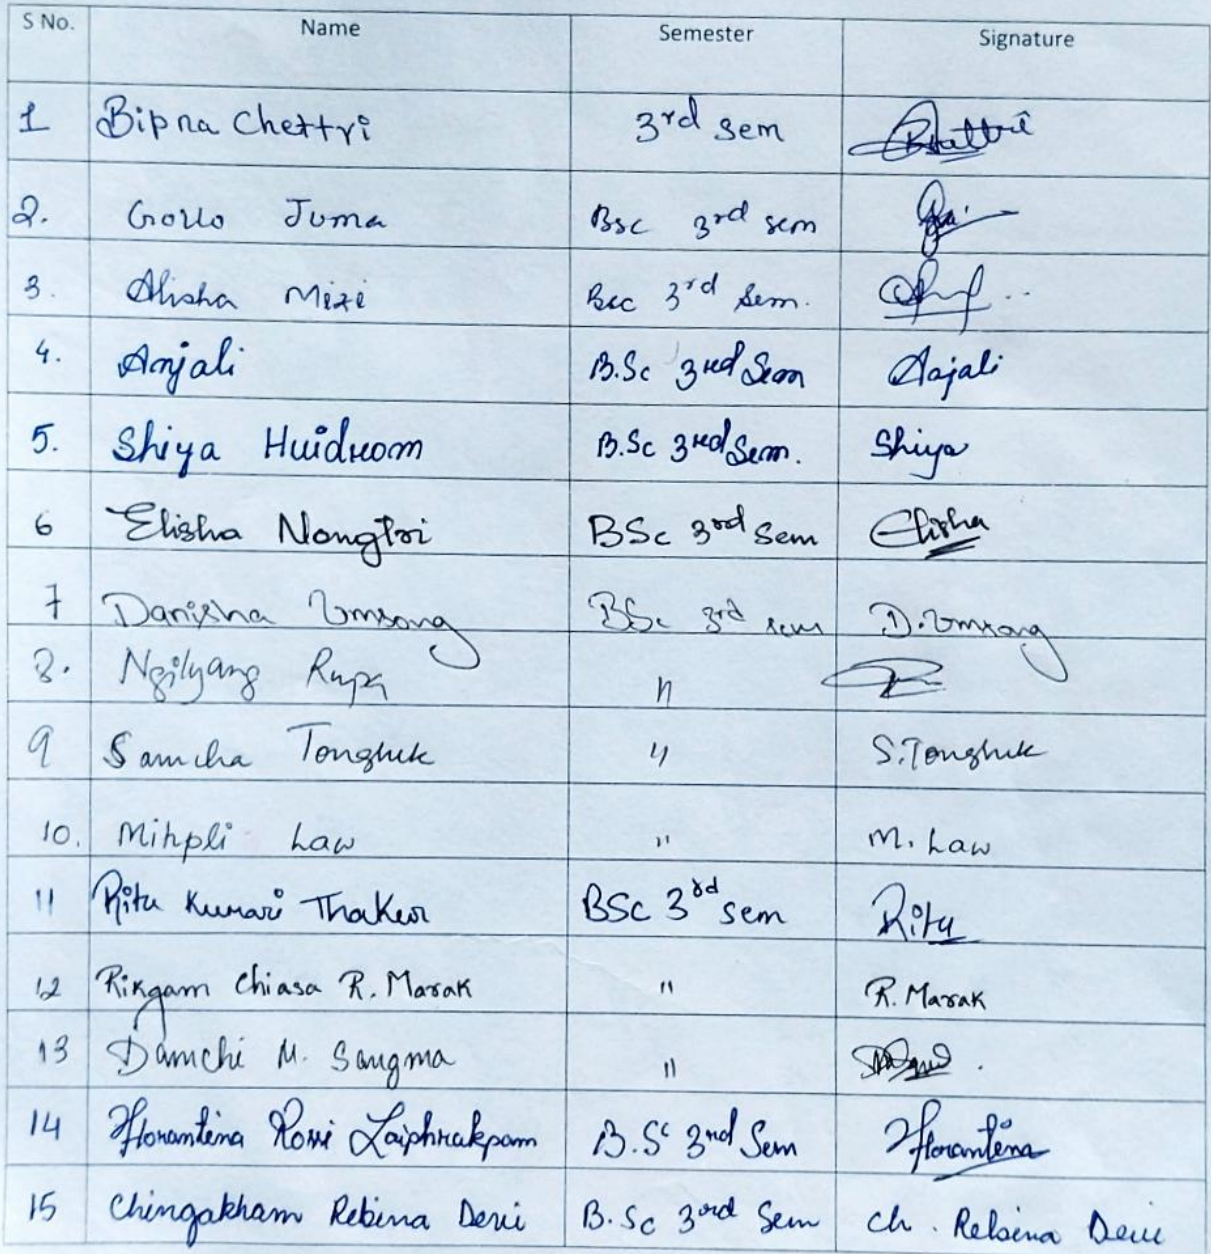 S No. Name Semester Signature
1 Bipna Chettri 3rd sem Chettri
2. Gollo Juma Bsc 3rd sem
3. Alisha Mizi Bsc 3rd Sem.
4. Anjali B.Sc 3rd Sem Anjali
5. Shiya Huidrom B.Sc 3rd Sem. Shiya
6 Elisha Nongtri BSc 3rd Sem Elisha
7 Danisha Umsong BSc 3rd sem D.Umsong
8. Ngilyang Rupa "
9 Samcha Tongluk " S.Tongluk
10. Mihpli Law " M. Law
11 Ritu Kumari Thakur BSc 3rd sem Ritu
12 Rikgam Chiasa R. Marak " R. Marak
13 Damchi M. Sangma "
14 Hforantina Rosi Laiphrakpam B.Sc 3rd Sem Hforantina
15 Chingakham Rebina Devi B.Sc 3rd Sem Ch. Rebina Devi